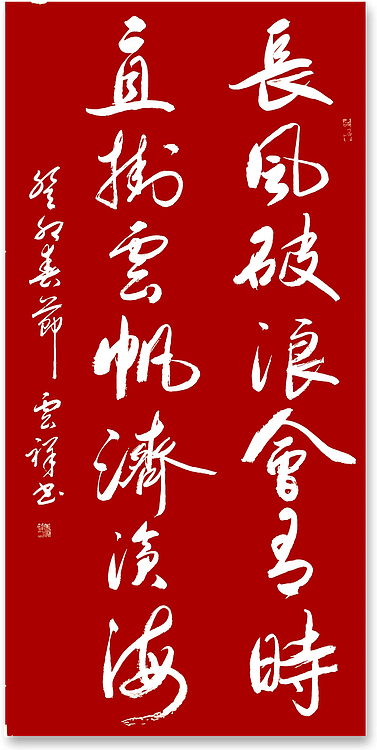 長風破浪會有時
直掛雲帆濟滄海
癸卯春節 雲祥書